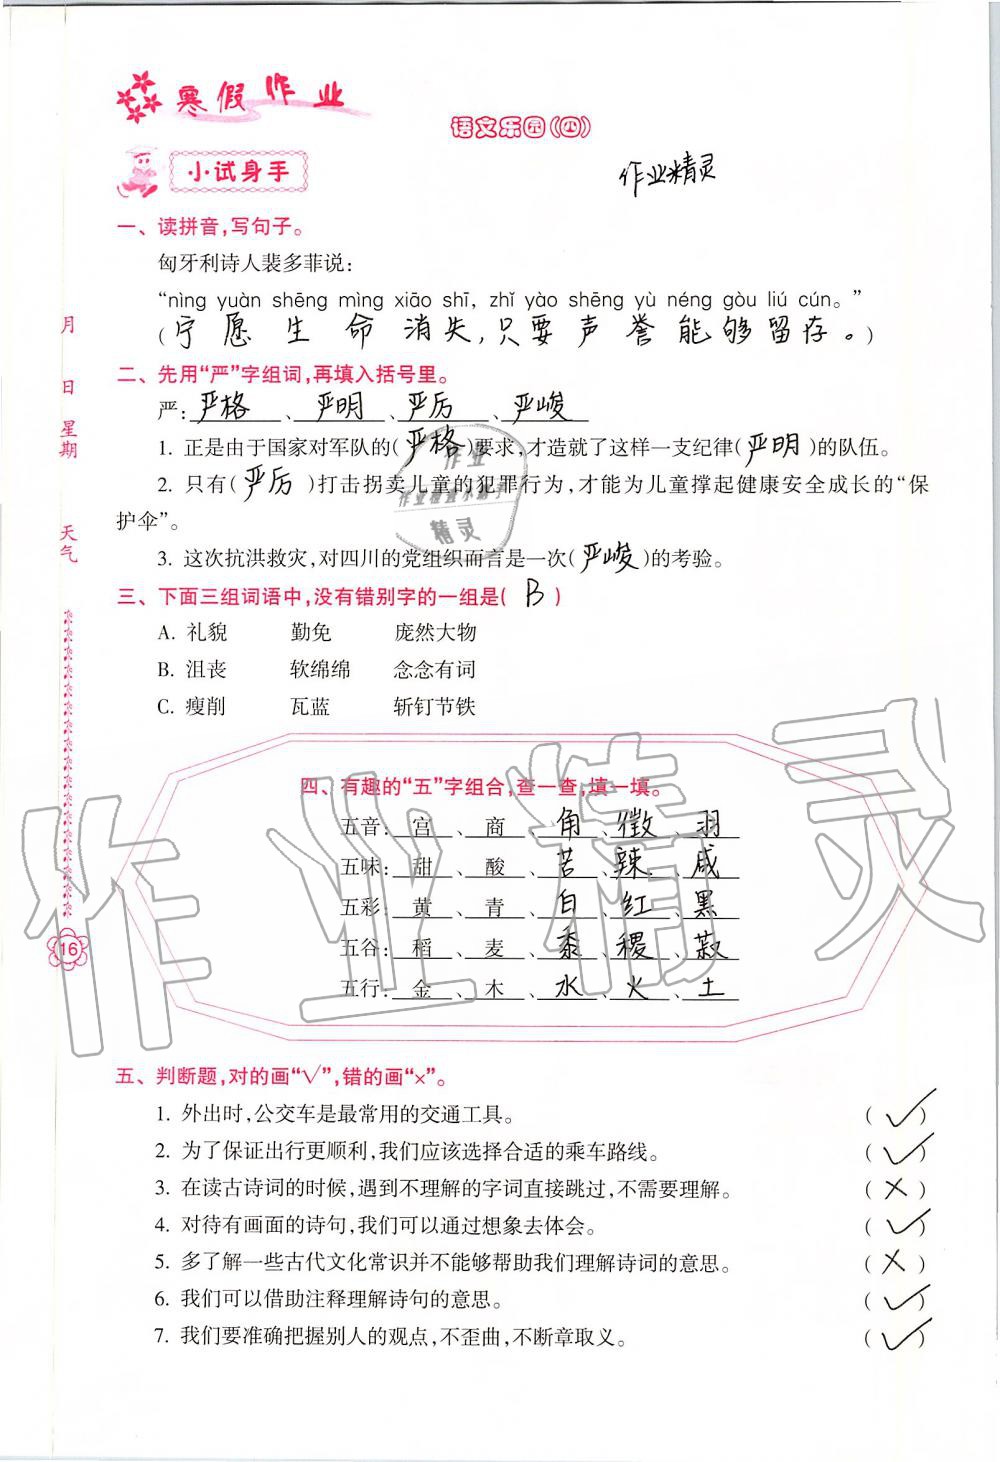 寒假作业
语文乐园(四)
小试身手
作业精灵
一、读拼音,写句子。
匈牙利诗人裴多菲说:
“nìng yuàn shēng mìng xiāo shī, zhǐ yào shēng yù néng gòu liú cún。”
(宁愿生命消失,只要声誉能够留存。)
二、先用“严”字组词,再填入括号里。
严: 严格 、 严明 、 严厉 、 严峻
1. 正是由于国家对军队的( 严格 )要求,才造就了这样一支纪律( 严明 )的队伍。
2. 只有( 严厉 )打击拐卖儿童的犯罪行为,才能为儿童撑起健康安全成长的“保
护伞”。
3. 这次抗洪救灾,对四川的党组织而言是一次( 严峻 )的考验。
三、下面三组词语中,没有错别字的一组是( B )
A. 礼貌 勤免 庞然大物
B. 沮丧 软绵绵 念念有词
C. 瘦削 瓦蓝 斩钉节铁
四、有趣的“五”字组合,查一查,填一填。
五音: 宫 、 商 、 角 、 徵 、 羽
五味: 甜 、 酸 、 苦 、 辣 、 咸
五彩: 黄 、 青 、 白 、 红 、 黑
五谷: 稻 、 麦 、 黍 、 稷 、 菽
五行: 金 、 木 、 水 、 火 、 土
五、判断题,对的画“√”,错的画“×”。
1. 外出时,公交车是最常用的交通工具。 ( √ )
2. 为了保证出行更顺利,我们应该选择合适的乘车路线。 ( √ )
3. 在读古诗词的时候,遇到不理解的字词直接跳过,不需要理解。 ( × )
4. 对待有画面的诗句,我们可以通过想象去体会。 ( √ )
5. 多了解一些古代文化常识并不能够帮助我们理解诗词的意思。 ( × )
6. 我们可以借助注释理解诗句的意思。 ( √ )
7. 我们要准确把握别人的观点,不歪曲,不断章取义。 ( √ )
月 日 星期 天气
16
作业
精灵
作业精灵